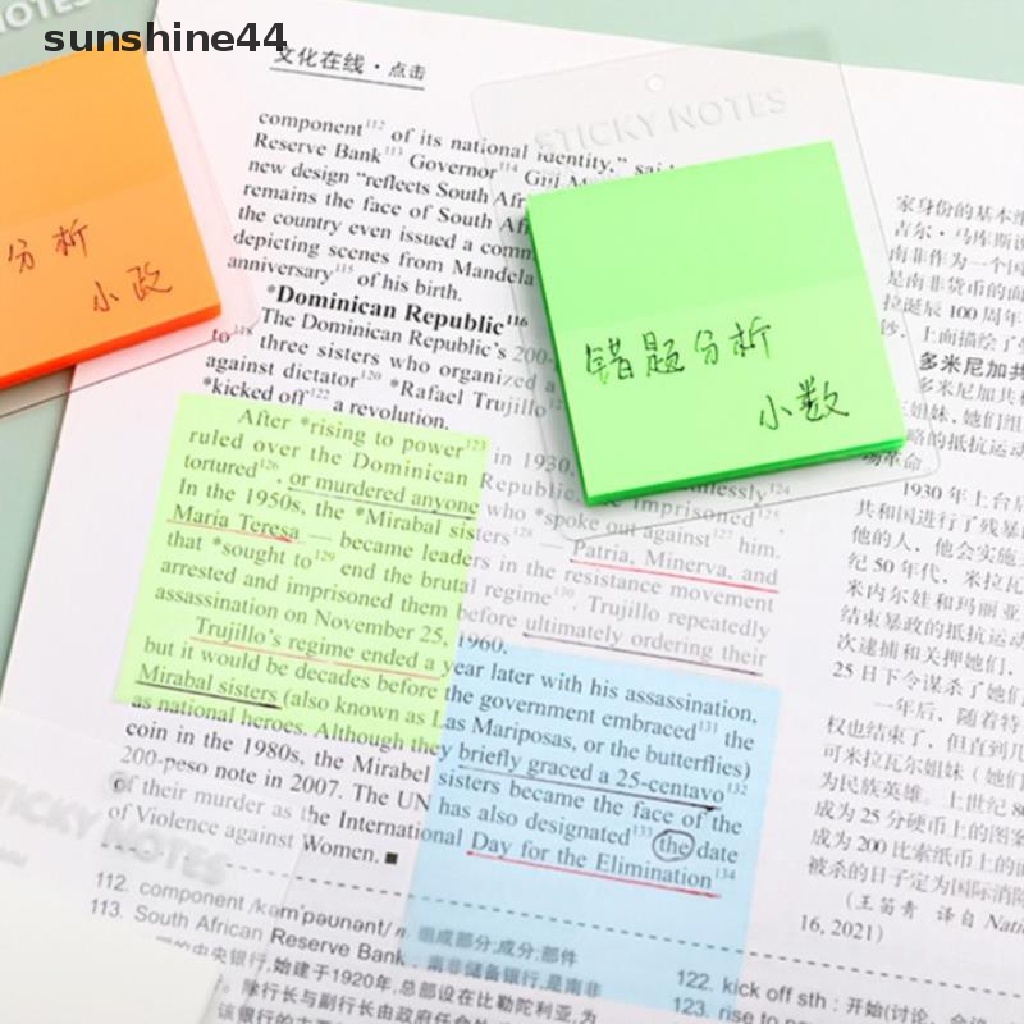 sunshine44
NOTES
文化在线·点击
STICKY NOTES
分析
小政
错题分析
小数
component¹¹² of its national identity," said
Reserve Bank¹¹³ Governor¹¹⁴
new design "reflects South
remains the face of South
the country even issued a
depicting scenes from Mandela
anniversary¹¹⁵ of his birth.
*Dominican Republic¹¹⁶
The Dominican Republic's 200-
to¹¹⁸ three sisters who organized a
against dictator¹²⁰ *Rafael Trujillo
*kicked off¹²² a revolution.
After *rising to power¹²³ in 1930,
ruled over the Dominican Republic
tortured¹²⁶, or murdered anyone who *spoke out against¹²⁷ him.
In the 1950s, the *Mirabal sisters¹²⁸ — Patria, Minerva, and
Maria Teresa — became leaders in the resistance movement
that *sought to¹²⁹ end the brutal regime¹³⁰. Trujillo repeatedly
arrested and imprisoned them before ultimately ordering their
assassination on November 25, 1960.
Trujillo's regime ended a year later with his assassination,
but it would be decades before the government embraced¹³¹ the
Mirabal sisters (also known as Las Mariposas, or the butterflies)
as national heroes. Although they briefly graced a 25-centavo¹³²
coin in the 1980s, the Mirabel sisters became the face of the
200-peso note in 2007. The UN has also designated¹³³ the date
of their murder as the International Day for the Elimination¹³⁴
of Violence against Women. ■
STICKY NOTES
112. component /kəmˈpəunənt/ n. 组成部分;成分;部件
113. South African Reserve Bank: 南非储备银行,是南非
中央银行,始建于1920年,总部设在比勒陀利亚,为
除行长与副行长由政府任命
122. kick off sth：开始(讨论、会议
123. rise to
家身份的基本组
吉尔·马库斯说
南非作为一个国
是南非货币的面
拉诞辰 100 周年
钞，上面描绘了
多米尼加共
多米尼加共
三姐妹，她们组
略的抵抗运动
革命
1930 年上台后
共和国进行了残暴
他的人，他会实施
纪 50 年代，米拉瓦
米内尔娃和玛丽亚
结束暴政的抵抗运动
次逮捕和关押她们，
25 日下令谋杀了她们
一年后，随着特
权也结束了，但直到几
可米拉瓦尔姐妹（她们
为民族英雄。上世纪 8
成为 25 分硬币上的图案
成为 200 比索纸币上的
被杀的日子定为国际消除
（王笛青 译自 Nati
16, 2021）